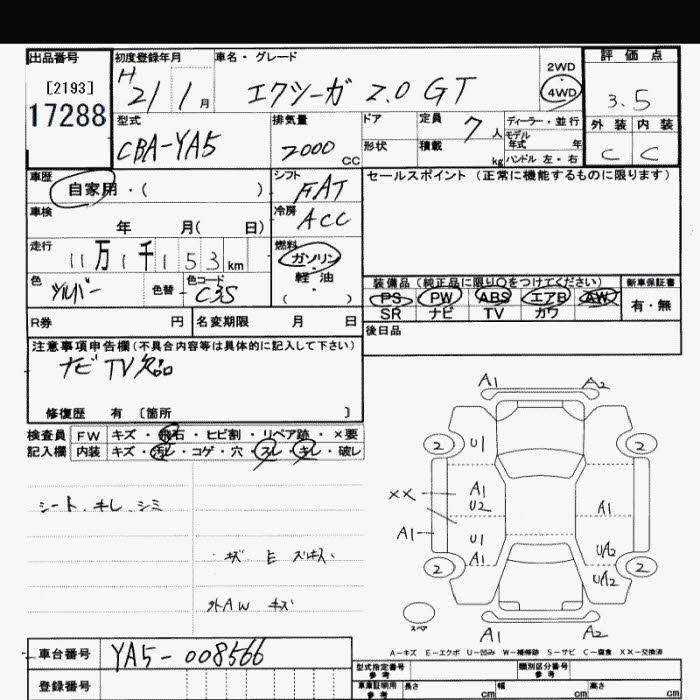 出品番号 初度登録年月 車名・グレード 評価点
[2193] H 2WD
17288 21 1月 エクシーガ 2.0 GT 4WD 3.5
型式 排気量 ドア 定員 7人 ディーラー・並行 外装 内装
CBA-YA5 2000CC 形状 積載 kg モデル年式 年 C C
ハンドル 左・右
車歴 自家用・( ) シフト FAT セールスポイント (正常に機能するものに限ります)
車検 年 月( 日) 冷房 ACC
走行 11万1千153km 燃料 ガソリン・軽油
( )
色 シルバー 色替 色コード C3S
装備品 (純正品に限り○をつけてください) 新車保証書
PS PW ABS エアB AW 有・無
SR ナビ TV カワ
R券 円 名変期限 月 日 後日品
注意事項申告欄(不具合内容等は具体的に記入して下さい)
ナビTV欠品
修復歴 有 〔箇所 〕
検査員 FW キズ・飛石・ヒビ割・リペア跡・×要
記入欄 内装 キズ・汚レ・コゲ・穴・スレ・キレ・破レ
シート キレ シミ
キズ E
外AW キズ
A1 A2
2 U1 2
XX A1 A1
U2
A1 U1 UA2
A1
2 UA2 2
スペア
A1 A2
A-キズ E-エクボ U-凹み W-補修跡 S-サビ C-腐食 XX-交換済
車台番号 YA5-008566
登録番号
型式指定番号 参考 類別区分番号 参考
車庫証明用 参考 長さ cm 幅 cm 高さ cm